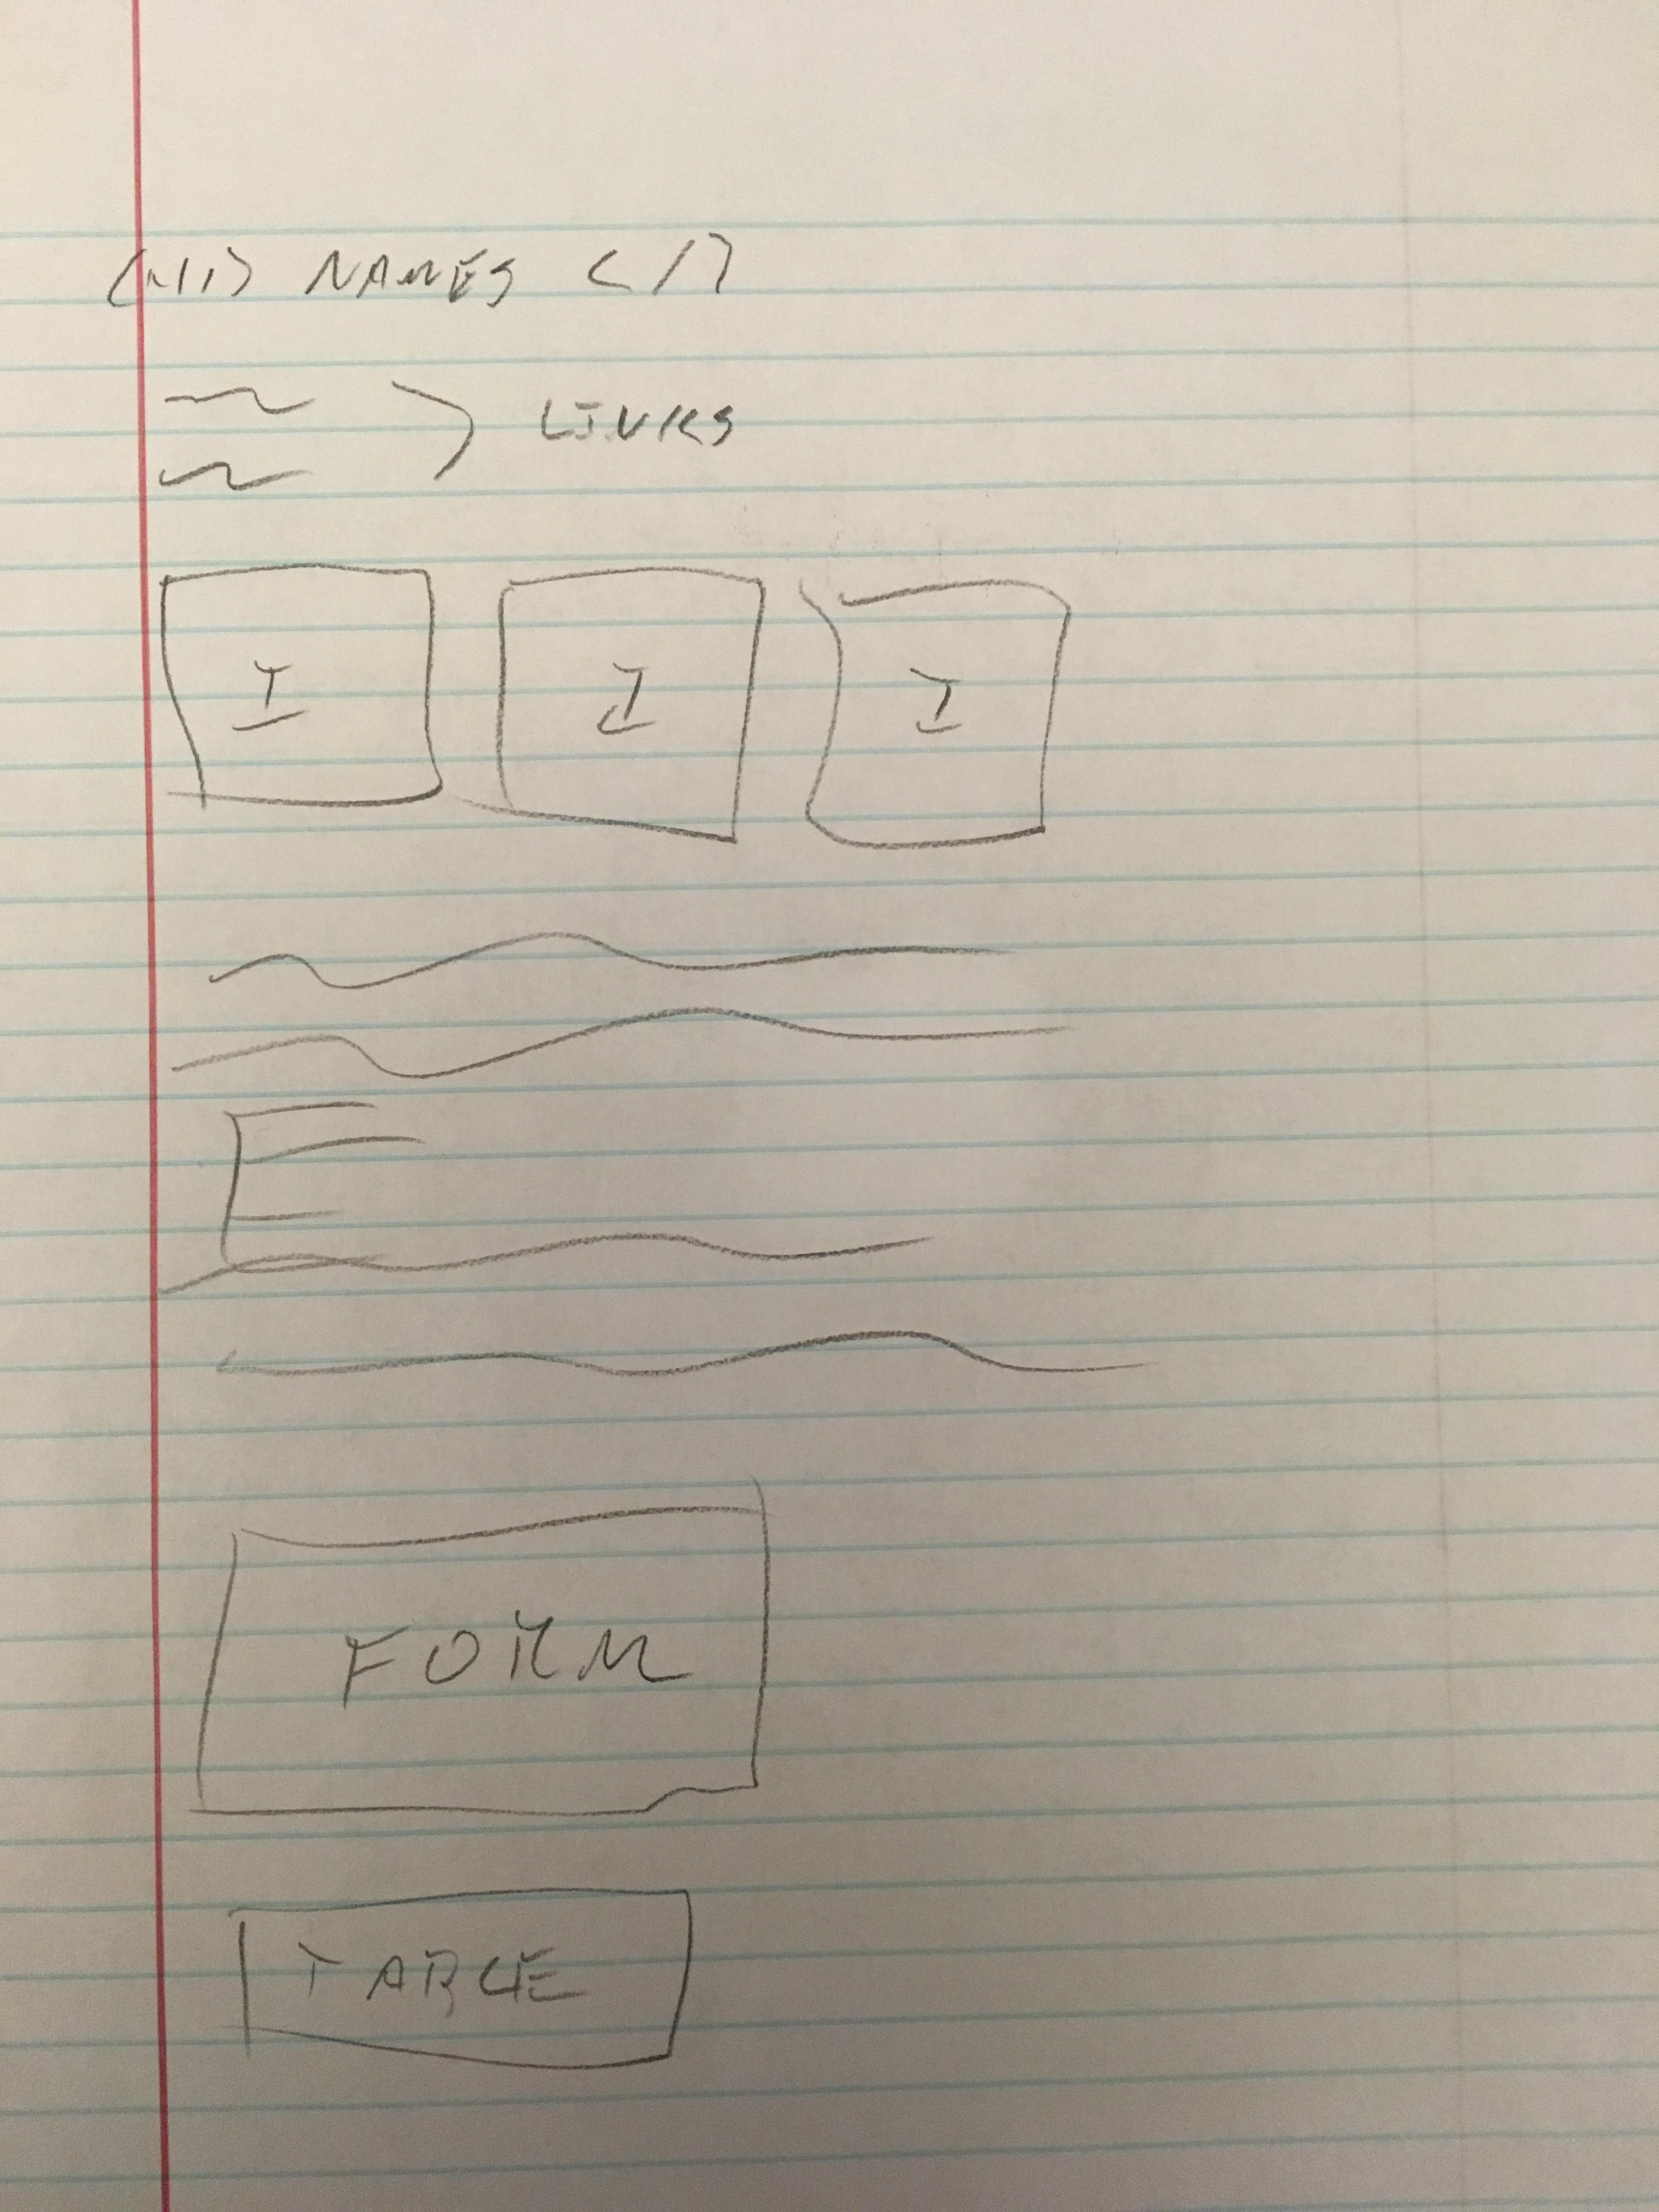 NAMES </>
LINKS
I I I
FORM
TABLE